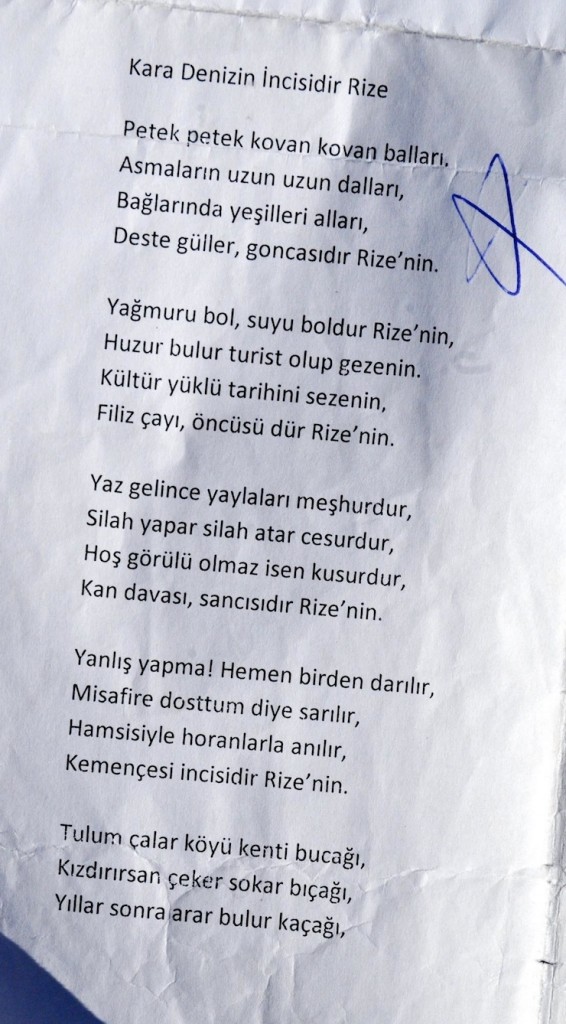 Kara Denizin İncisidir Rize
Petek petek kovan kovan balları.
Asmaların uzun uzun dalları,
Bağlarında yeşilleri alları,
Deste güller, goncasıdır Rize’nin.
Yağmuru bol, suyu boldur Rize’nin,
Huzur bulur turist olup gezenin.
Kültür yüklü tarihini sezenin,
Filiz çayı, öncüsü dür Rize’nin.
Yaz gelince yaylaları meşhurdur,
Silah yapar silah atar cesurdur,
Hoş görülü olmaz isen kusurdur,
Kan davası, sancısıdır Rize’nin.
Yanlış yapma! Hemen birden darılır,
Misafire dosttum diye sarılır,
Hamsisiyle horanlarla anılır,
Kemençesi incisidir Rize’nin.
Tulum çalar köyü kenti bucağı,
Kızdırırsan çeker sokar bıçağı,
Yıllar sonra arar bulur kaçağı,